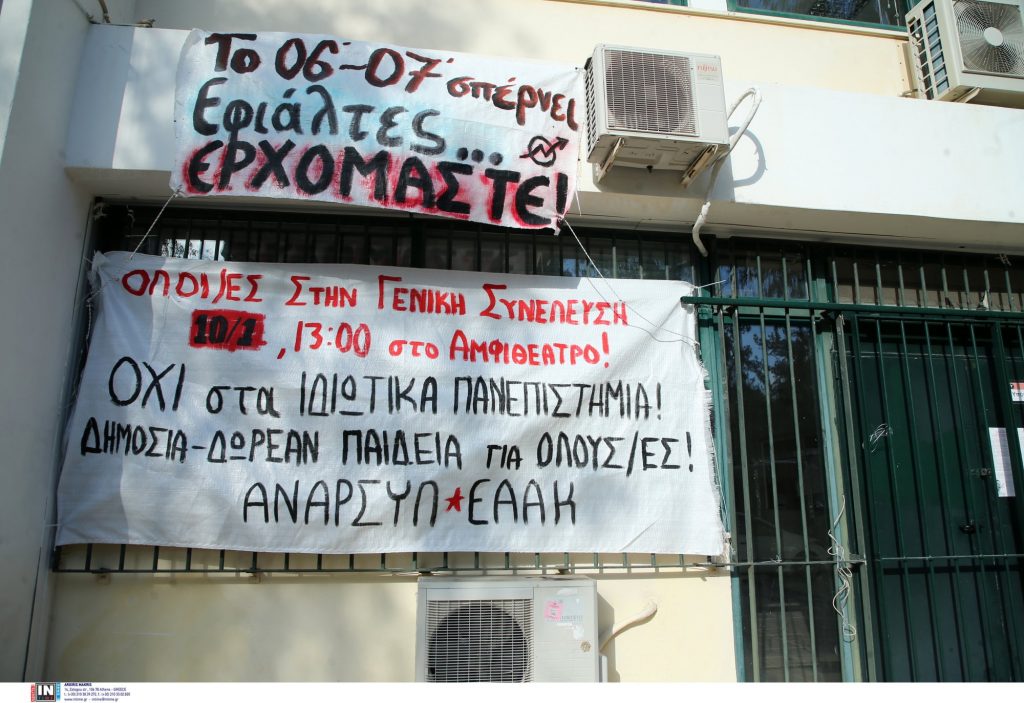 Το 06'-07' σπέρνει
Εφιάλτες...
ΕΡΧΟΜΑΣΤΕ!
ΟΛΟΙ/ΕΣ ΣΤΗΝ ΓΕΝΙΚΗ ΣΥΝΕΛΕΥΣΗ
10/1, 13:00 στο ΑΜΦΙΘΕΑΤΡΟ!
ΟΧΙ στα ΙΔΙΩΤΙΚΑ ΠΑΝΕΠΙΣΤΗΜΙΑ!
ΔΗΜΟΣΙΑ-ΔΩΡΕΑΝ ΠΑΙΔΕΙΑ για ΟΛΟΥΣ/ΕΣ!
ΑΝΑΡΣΥΠ★ΕΑΑΚ
FUJITSU
IN